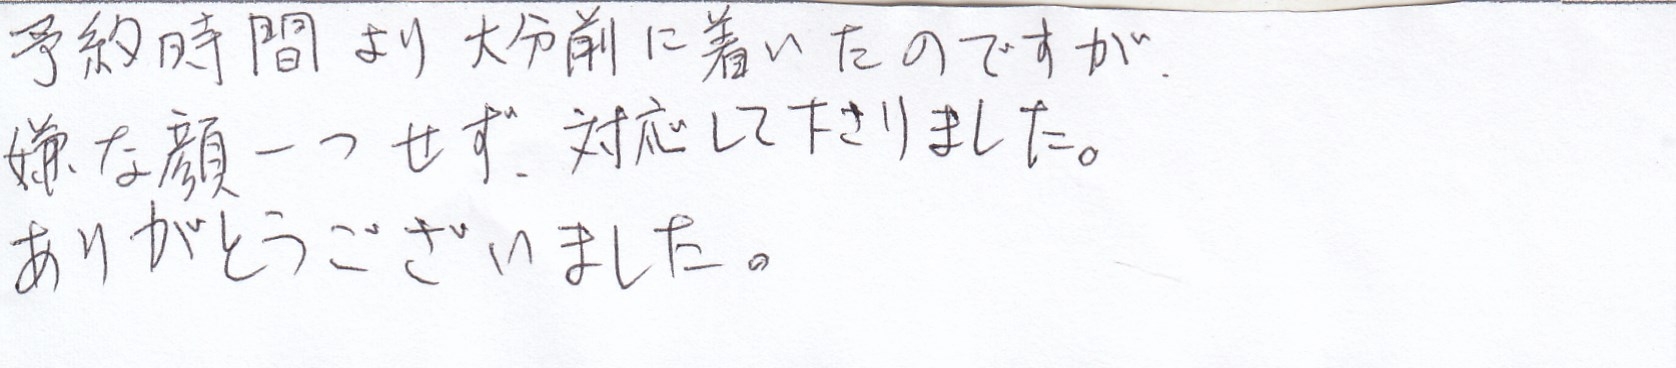 予約時間より大分前に着いたのですが、
嫌な顔一つせず、対応して下さりました。
ありがとうございました。